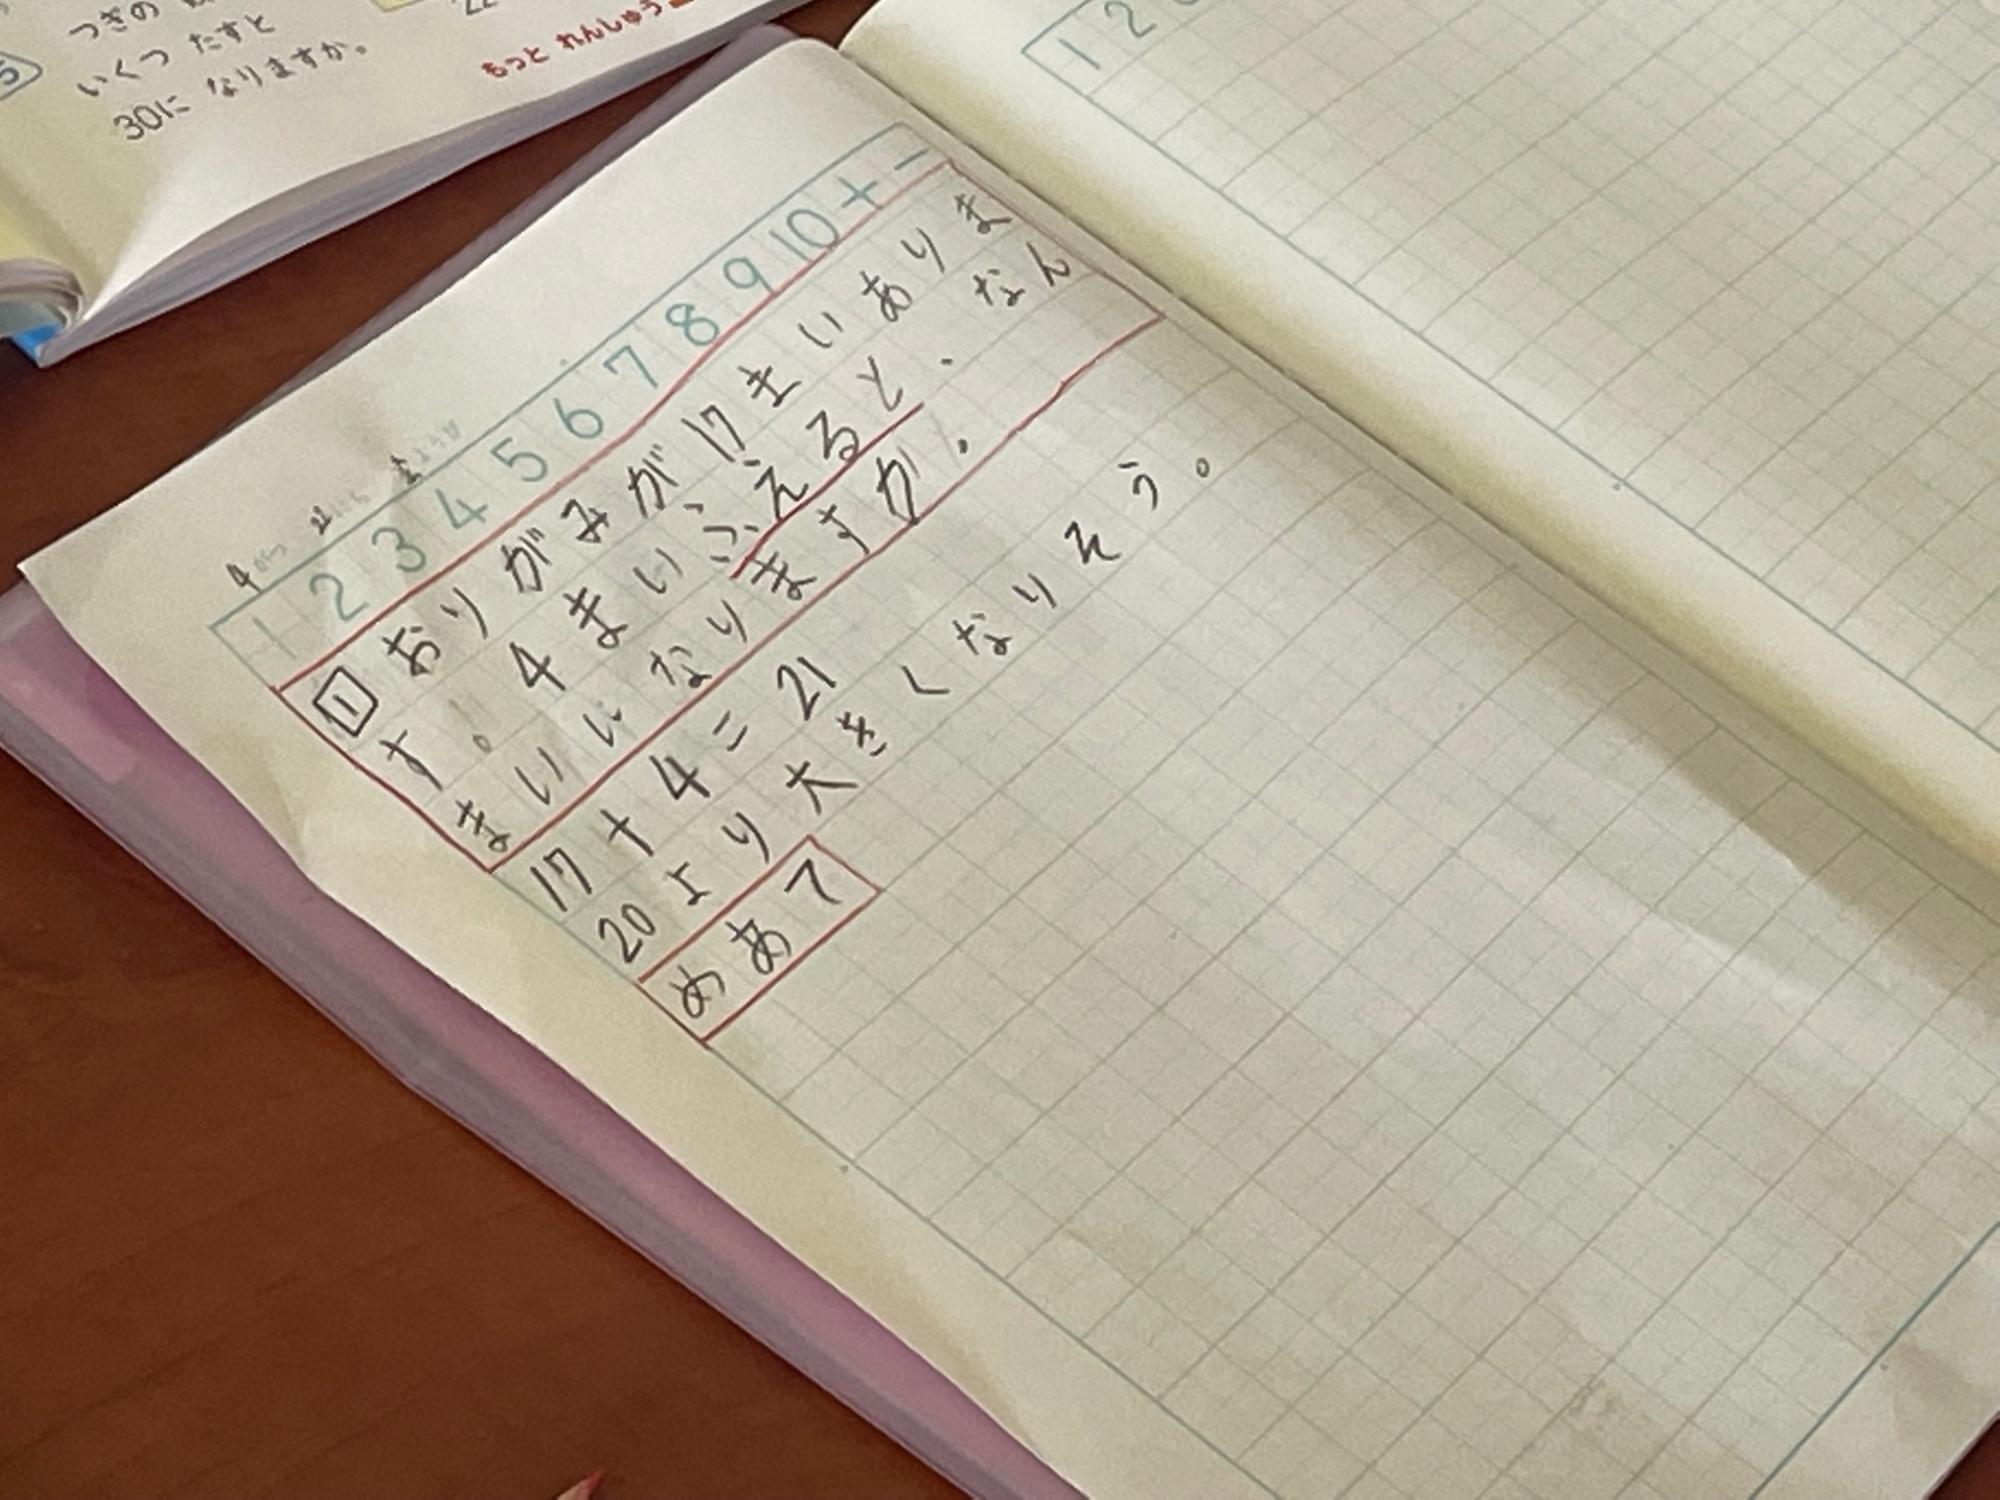 つぎの
いくつ たすと
30に なりますか。
もっと れんしゅう
1 2
4がつ
1 2 3 4 5 6 7 8 9 10 + −
1 おりがみが17まいありま
す。4まいふえると、なん
まいになりますか。
17+4=21
20より大きくなりそう。
めあて